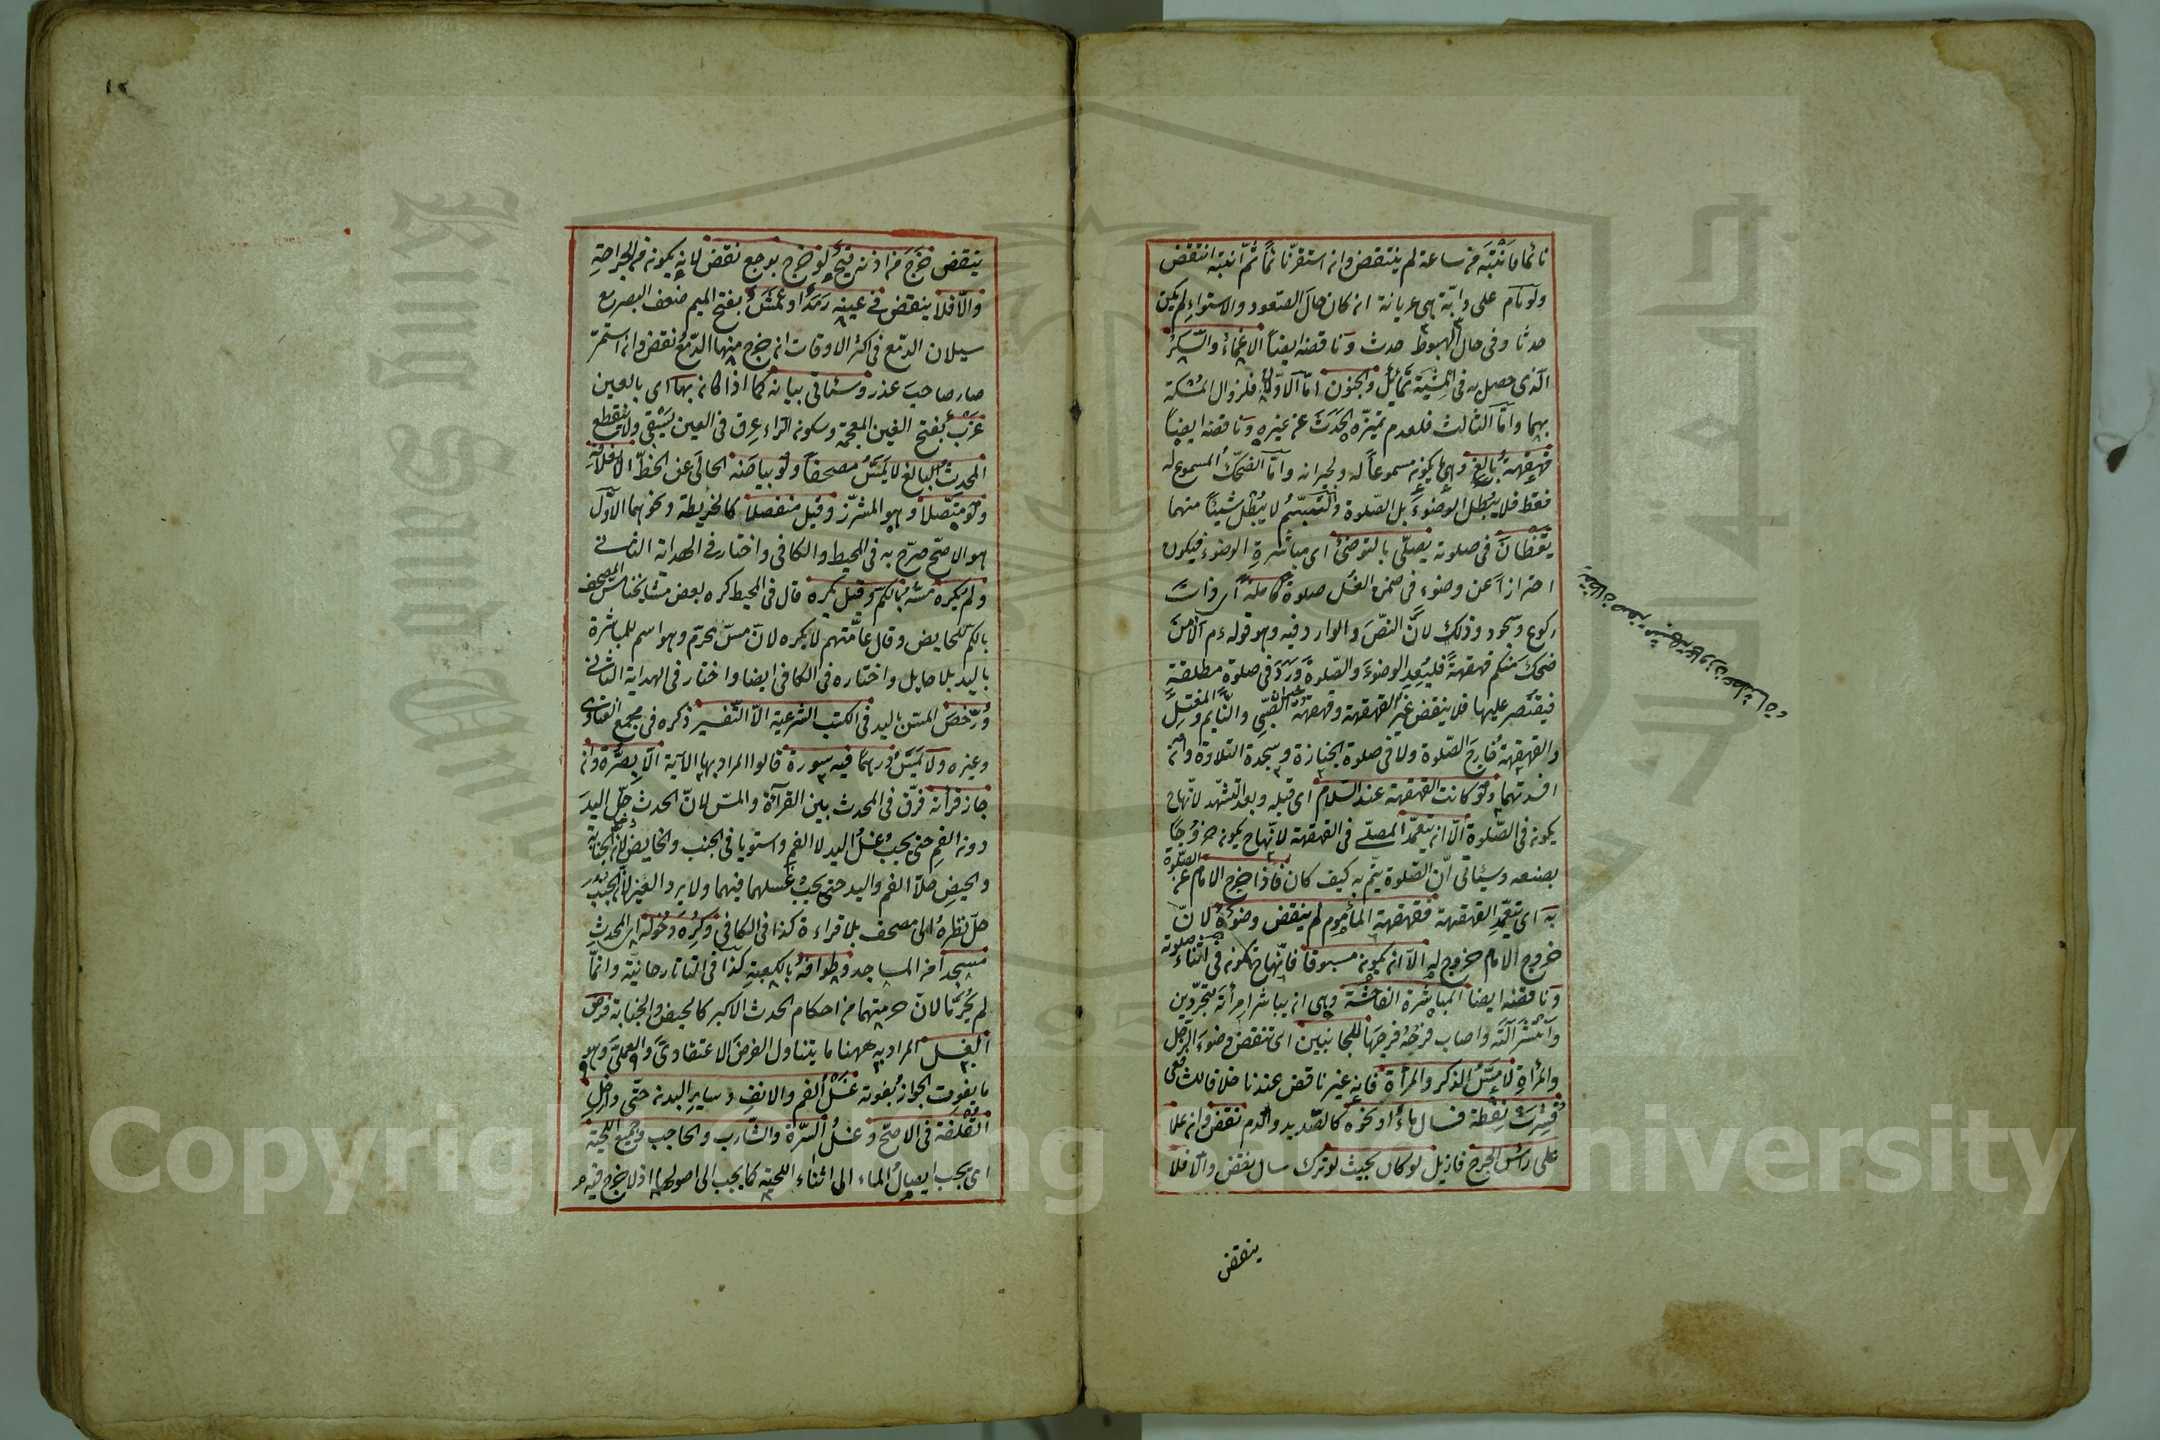 نائما فانتبه من ساعة لم ينتقض وان استقر نائما ثم انتبه انتقض
ولو نام على دابة هي عريانة ان كان حال الصعود والاستواء لم يكن
حدثا وفي حال الهبوط حدث وناقضه ايضا الاغماء والسكر
الذي حصل به في المشية تمايل والجنون اما الاولان فلزوال المسكة
بهما واما الثالث فلعدم تميزه الحدث عن غيره وناقضه ايضا
قهقهة بالغ وهي ما يكون مسموعا له ولجيرانه واما الضحك المسموع له
فقط فلا يبطل الوضوء بل الصلوة والتبسم لا يبطل شيئا منهما
يقظان في صلوته يصلي بالتوضئ اي مباشرة الوضوء فيكون
احترازا عن وضوء في ضمن الغسل صلوة كاملة اي ذات
ركوع وسجود وذلك لان النص والوارد فيه وهو قوله ءم الا من
ضحك منكم قهقهة فليعد الوضوء والصلوة ورد في صلوة مطلقة
فيقتصر عليها فلا ينقض غير القهقهة وقهقهة الصبي والنايم والمغتسل
والقهقهة خارج الصلوة ولا في صلوة الجنازة وسجدة التلاوة وان
افسدتهما ولو كانت القهقهة عند السلام اي قبله وبعد التشهد لانهاح
يكون في الصلوة الا ان يتعمد المصلى في القهقهة لانهاح يكون خروجا
بصنعه وسيئاتي ان الصلوة يتم به كيف كان فاذا خرج الامام عن الصلوة
به اي بتعمد القهقهة فقهقهة المأموم لم ينقض وضوءه لان
خروج الامام خروج له الا ان يكون مسبوقا فانهاح تكون في اثناء صلوته
وناقضه ايضا المباشرة الفاحشة وهي ان يباشر امرأته متجردين
وانتشر آلته واصاب فرجه فرجها للجانبين اي تنقض وضوء الرجل
والمرأة لا مس الذكر والمرأة فانه غير ناقض عندنا خلافا للشافعي
قشرت نفطة فسال ماء او نحوه كالصديد والدم نقض وان علا
على رأس الجرح فازيل لو كان بحيث لو ترك سال ينقض والا فلا
ينقض
ينقض خرج من اذنه قيح لو خرج بوجع نقض لانه يكون من الجراحة
والا فلا ينقض في عينه رمد او عمش بفتح الميم ضعف البصر مع
سيلان الدمع في اكثر الاوقات ان خرج منها الدمع نقض وان استمر
صار صاحب عذر وسيئاتي بيانه كما اذا كان بها اي بالعين
غرب بفتح الغين المعجمة وسكون الراء عرق في العين يسقي ولا ينقطع
المحدث البالغ لا يمس مصحفا ولو بياضه الخالي عن الخط الا بغلافه
ولو متصلا وهو المشرز وقيل منفصلا كالخريطة ونحوهما الاول
هو الاصح صرح به في المحيط والكافي واختار في الهداية الثاني
ولم يكره مسه بالكم وقيل يكره قال في المحيط كره بعض مشايخنا مس المصحف
بالكم للحايض وقال عامتهم لا يكره لان مس محرم وهو اسم للمباشرة
باليد بلا حايل واختاره في الكافي ايضا واختار في الهداية الثاني
ورخص المس باليد في الكتب الشرعية الا التفسير ذكره في مجمع الفتاوى
وغيره ولا يمس درهما فيه سورة قالوا المراد بها الآية الا بصرة وان
جاز قرأته فرق في المحدث بين القرآءة والمس لان الحدث حل اليد
دون الفم حتى يجب غسل اليد لا الفم واستويا في الجنب والحايض لان الجنابة
والحيض حلا الفم واليد حتى يجب غسلهما فيهما ولا يرد العين لان الجنب
حل نظره الى مصحف بلا قراءة كذا في الكافي وكره دخوله اي المحدث
مسجدا من المساجد وطوافه بالكعبة كذا في التاتارخانية وانما
لم يحرما لان حرمتهما من احكام الحدث الاكبر كالحيض والجنابة فرض
الغسل المراد به ههنا ما يتناول الفرض الاعتقادي والعملي وهو
ما يفوت الجواز بفوته غسل الفم والانف وساير البدن حتى داخل
القلفة في الاصح وغسل السرة والشارب والحاجب وجميع اللحية
اي يجب ايصال الماء الى اثناء اللحية كما يجب الى اصولها اذ لا حرج فيه
King Saud University
Copyright © King Saud University